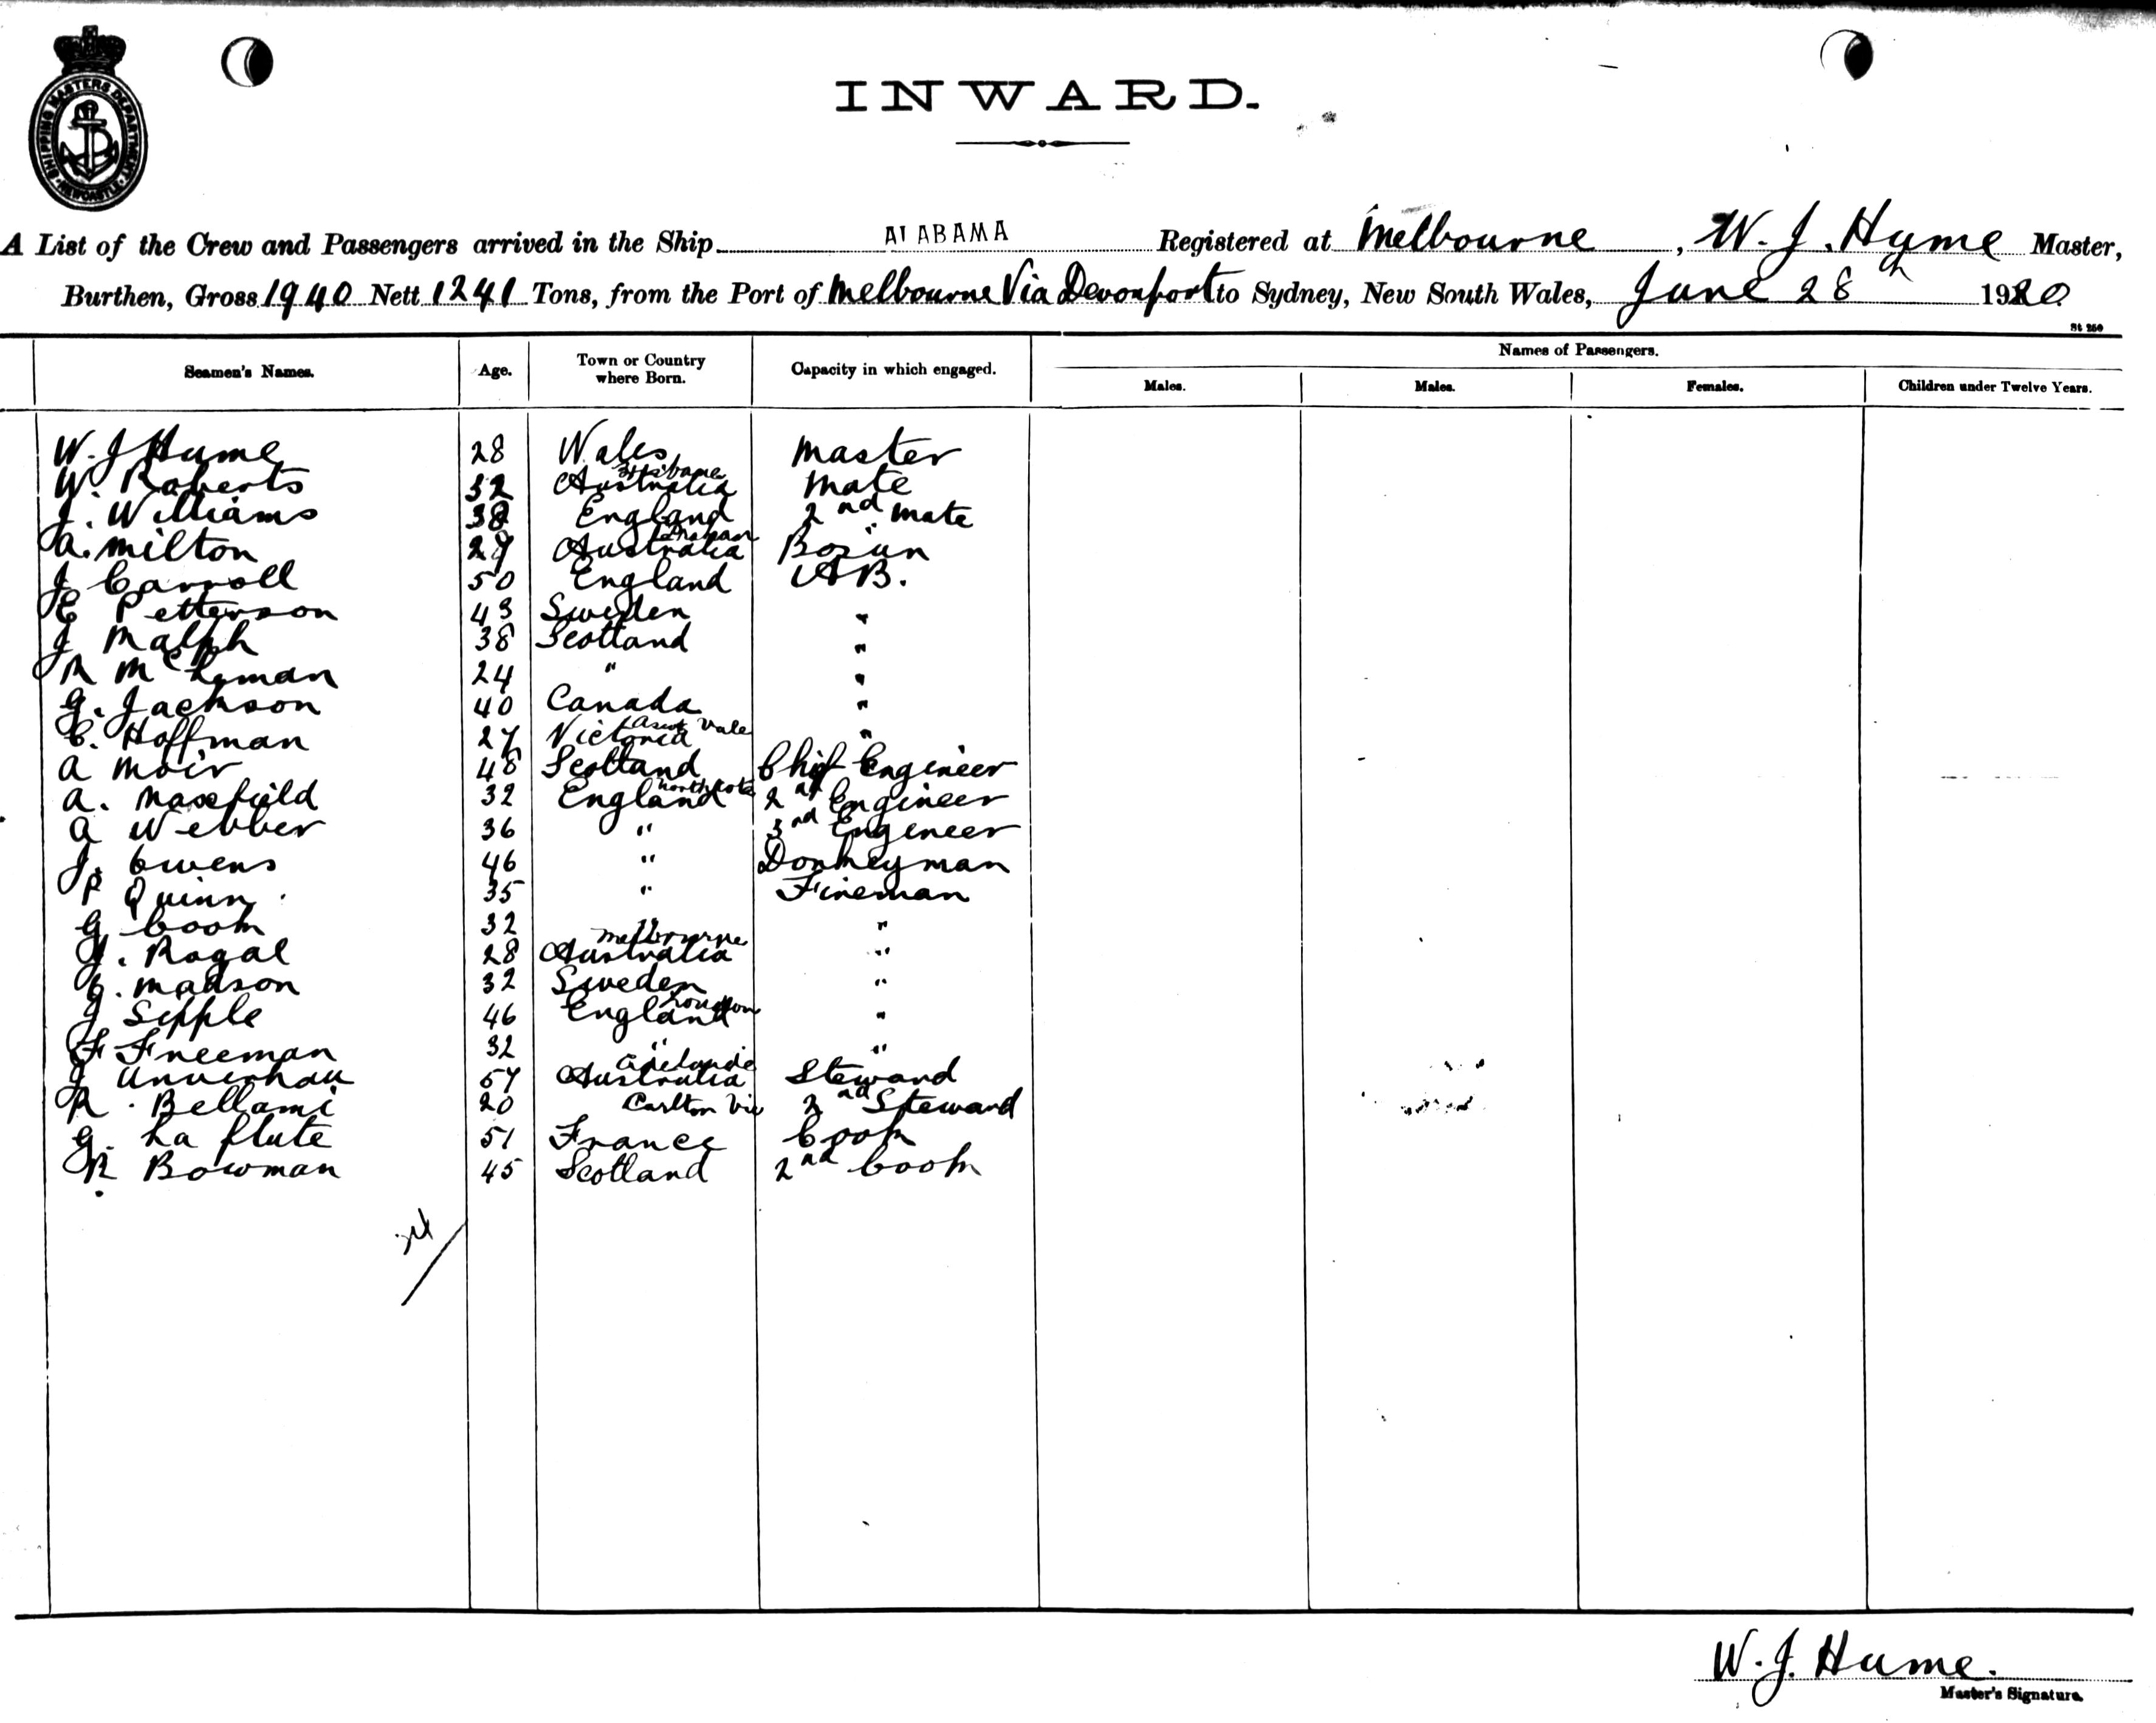 SHIPPING MASTERS DEPARTMENT NEWCASTLE
INWARD.
A List of the Crew and Passengers arrived in the Ship ALABAMA Registered at Melbourne, W. J. Hume Master,
Burthen, Gross 1940 Nett 1241 Tons, from the Port of Melbourne Via Devonport to Sydney, New South Wales, June 28th 1920
St 250
Seamen's Names. Age. Town or Country where Born. Capacity in which engaged. Names of Passengers.
Males. Males. Females. Children under Twelve Years.
W. J Hume 28 Wales Master
W. Roberts 32 Brisbane Australia Mate
J. Williams 38 England 2nd Mate
A. Milton 29 Australia Bosun
J Carroll 50 England AB.
E Petterson 43 Sweden "
J Malph 38 Scotland "
R 24 " "
G. Jackson 40 Canada "
C. Hoffman 27 Victoria Ascot Vale "
A Moir 48 Scotland Chief Engineer
A. Maxfield 32 England Northcote 2nd Engineer
A Webber 36 " 3rd Engineer
J. Owens 46 " Donkeyman
P Quinn 35 " Fireman
G Cook 32 " "
J. Rogal 28 Melbourne Australia "
C. Madson 32 Sweden "
J Sipple 46 England London "
F Freeman 32 " "
J Unverhau 57 Adelaide Australia Steward
R. Bellami 20 Carlton Vic 2nd Steward
G. La flute 51 France Cook
R Bowman 45 Scotland 2nd Cook
24
W. J. Hume.
Master's Signature.